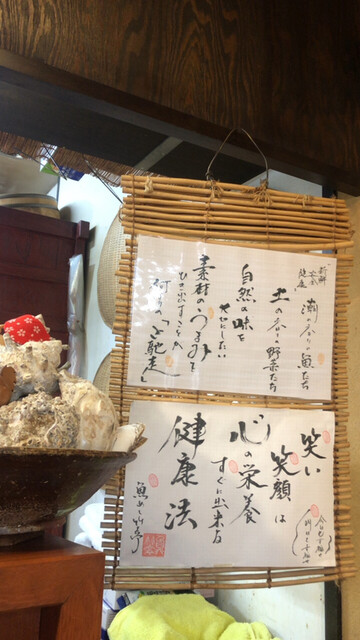 新鮮
安全
健康
潮の香りの魚たち
土の香りの野菜たち
自然の味を
大切にしたい
素材のうまみを
ひき出すことが
何よりのご馳走
笑い
笑顔は
心の栄養
すぐに出来る
健康法